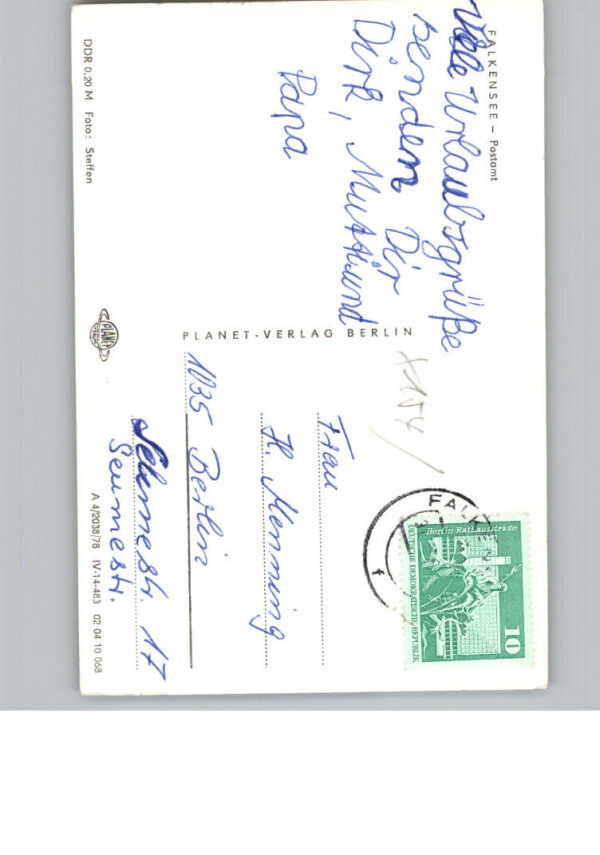 FALKENSEE – Postamt
Viele Urlaubsgrüße
senden Dir
Dirk, Mutti und
Papa
DDR 0,20 M Foto: Steffen
PLANET-VERLAG BERLIN
PLANET
FALKENSEE
1
Berlin-Rathausstraße
DEUTSCHE DEMOKRATISCHE REPUBLIK
10
Frau
H. Menning
1035 Berlin
17
Seumestr.
A 4/2038/78 IV-14-483 02 04 10 068